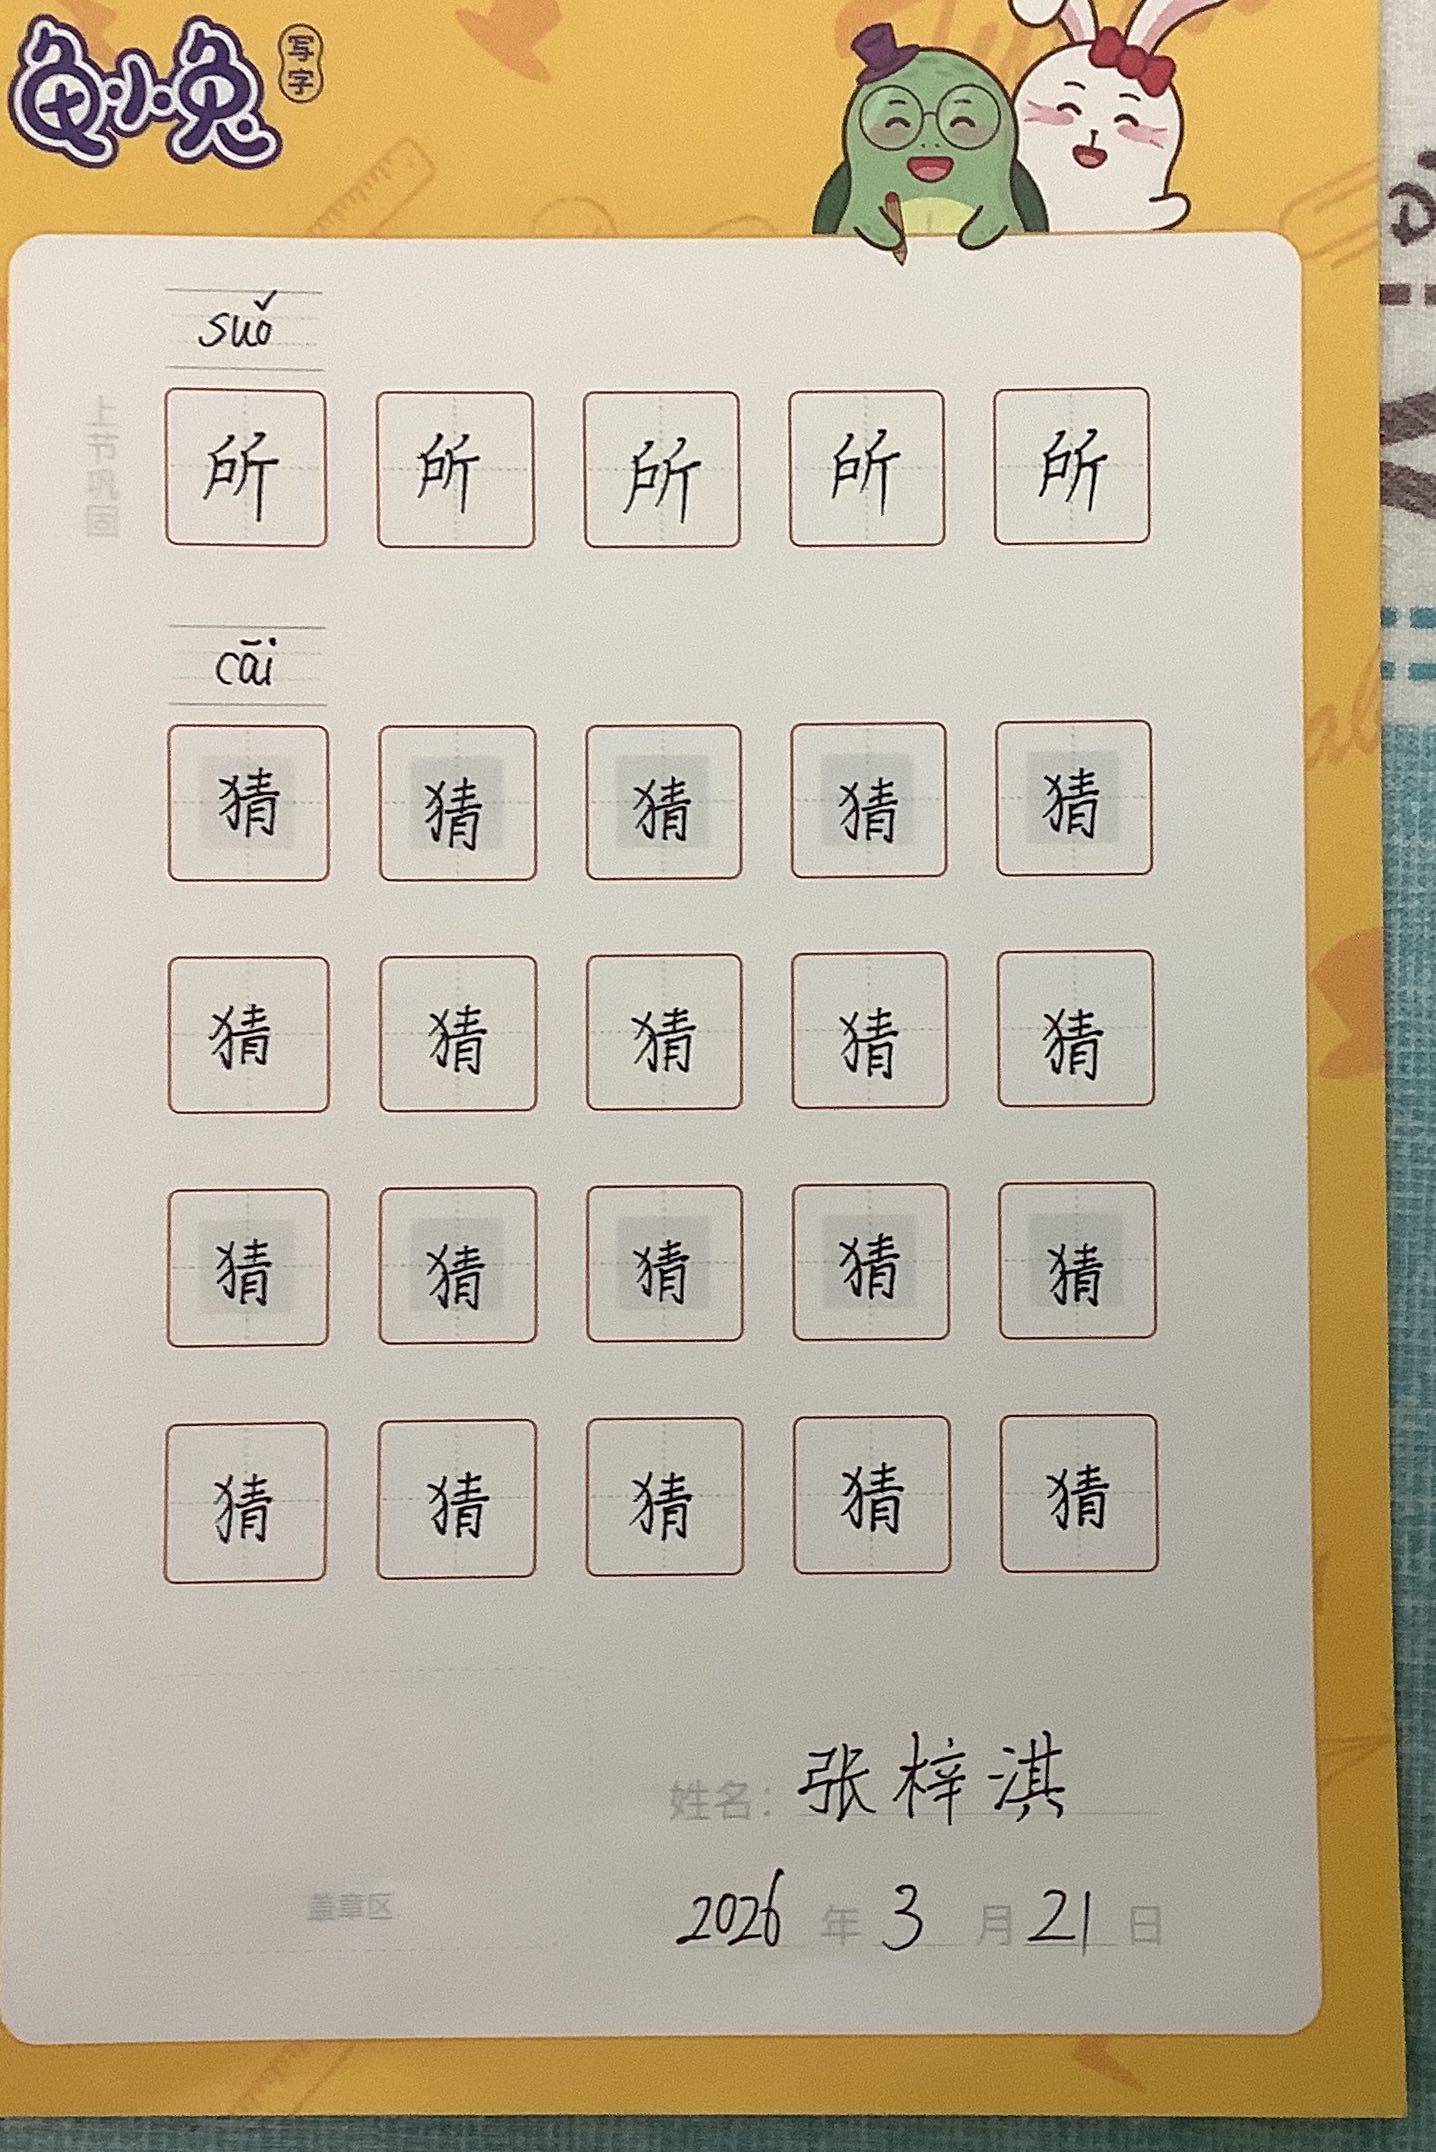 龟小兔
写字
suǒ
上节巩固
所 所 所 所 所
cāi
猜 猜 猜 猜 猜
猜 猜 猜 猜 猜
猜 猜 猜 猜 猜
猜 猜 猜 猜 猜
姓名：张梓淇
盖章区
2026年3月21日